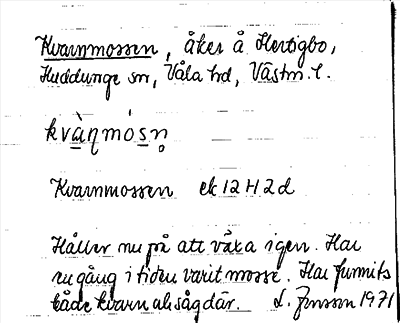 Kvarnmossen, åker å Hertigbo,
Huddunge sn, Våla hd, Västm. l.
kvàɳmósn̥
Kvarnmossen ek 12 H 2 d
Håller nu på att växa igen. Har
en gång i tiden varit mosse. Har funnits
både kvarn och såg där. L. Jonsson 1971